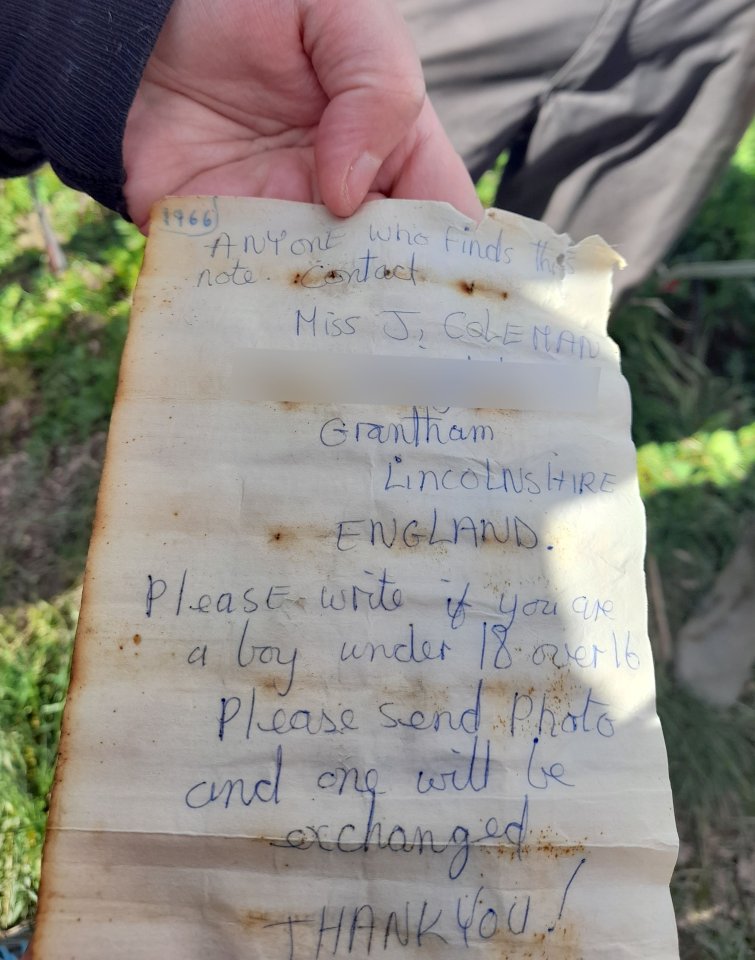 1966
ANYONE who Finds this
note. Contact
Miss J. COLEMAN
Grantham
LINCOLNSHIRE
ENGLAND.
Please write if you are
a boy under 18 over 16
Please send Photo
and one will be
exchanged
THANK YOU!